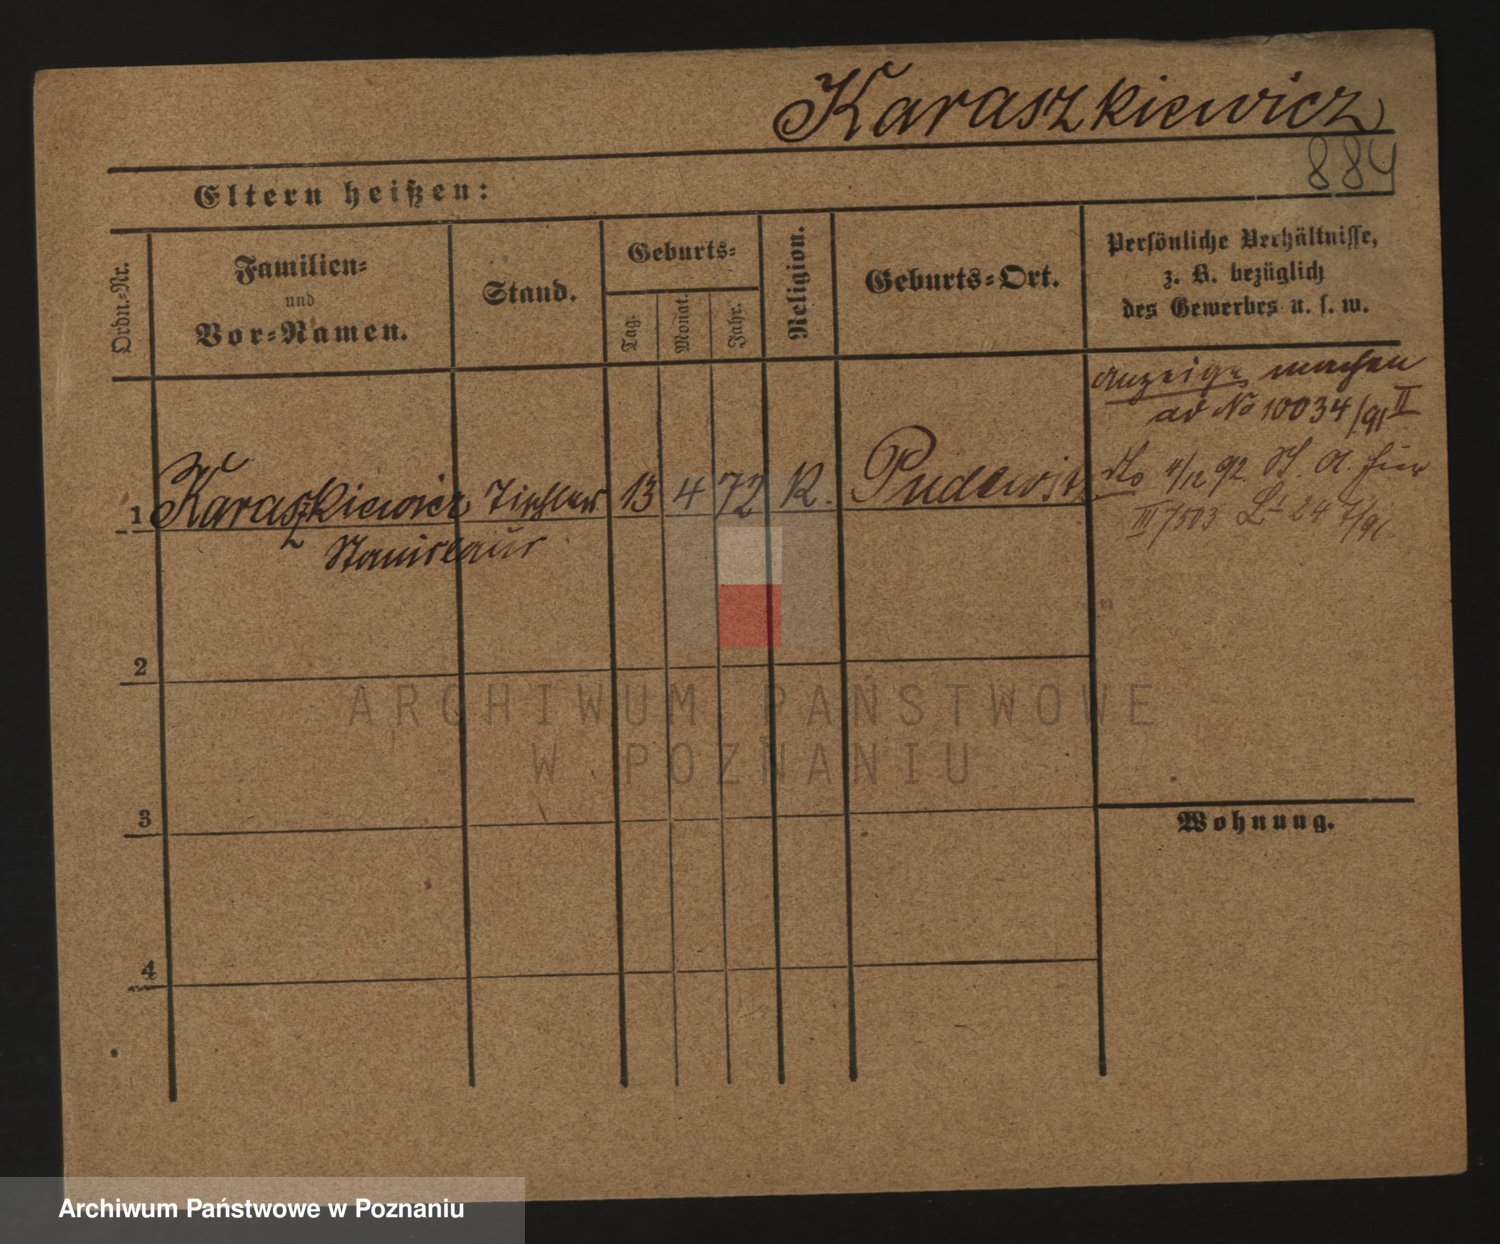 Karaszkiewicz
884
Eltern heißen:
Ordn.-Nr.
Familien-
und
Vor-Namen.
Stand.
Geburts-
Tag.
Monat.
Jahr.
Religion.
Geburts-Ort.
Persönliche Verhältnisse,
z. B. bezüglich
des Gewerbes u. s. w.
Anzeige machen
ad No 10034/91 II
1 Karaszkiewicz Tischler 13 4 72 K. Pudewitz
Stanislaus
4/12 92
III 7503 24
2
ARCHIWUM PAŃSTWOWE
W POZNANIU
3
Wohnung.
4
Archiwum Państwowe w Poznaniu